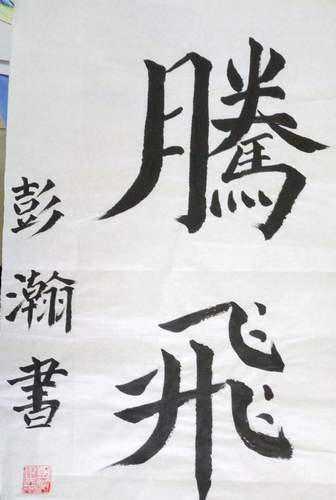 騰飛
彭瀚書